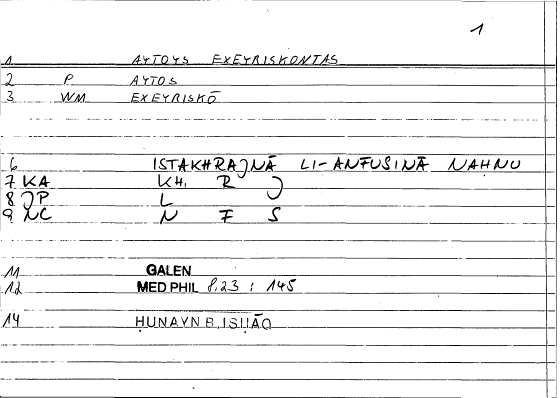 1
1 AYTOYS EXEYRISKONTAS
2 P AYTOS
3 WM EXEYRISKŌ
6 ISTAKHRAJNĀ LI-ANFUSINĀ NAHNU
7 KA KH. R J
8 JP L
9 NC N F S
11 GALEN
12 MED PHIL 8.23 : 145
14 ḤUNAYN B. ISḤĀQ